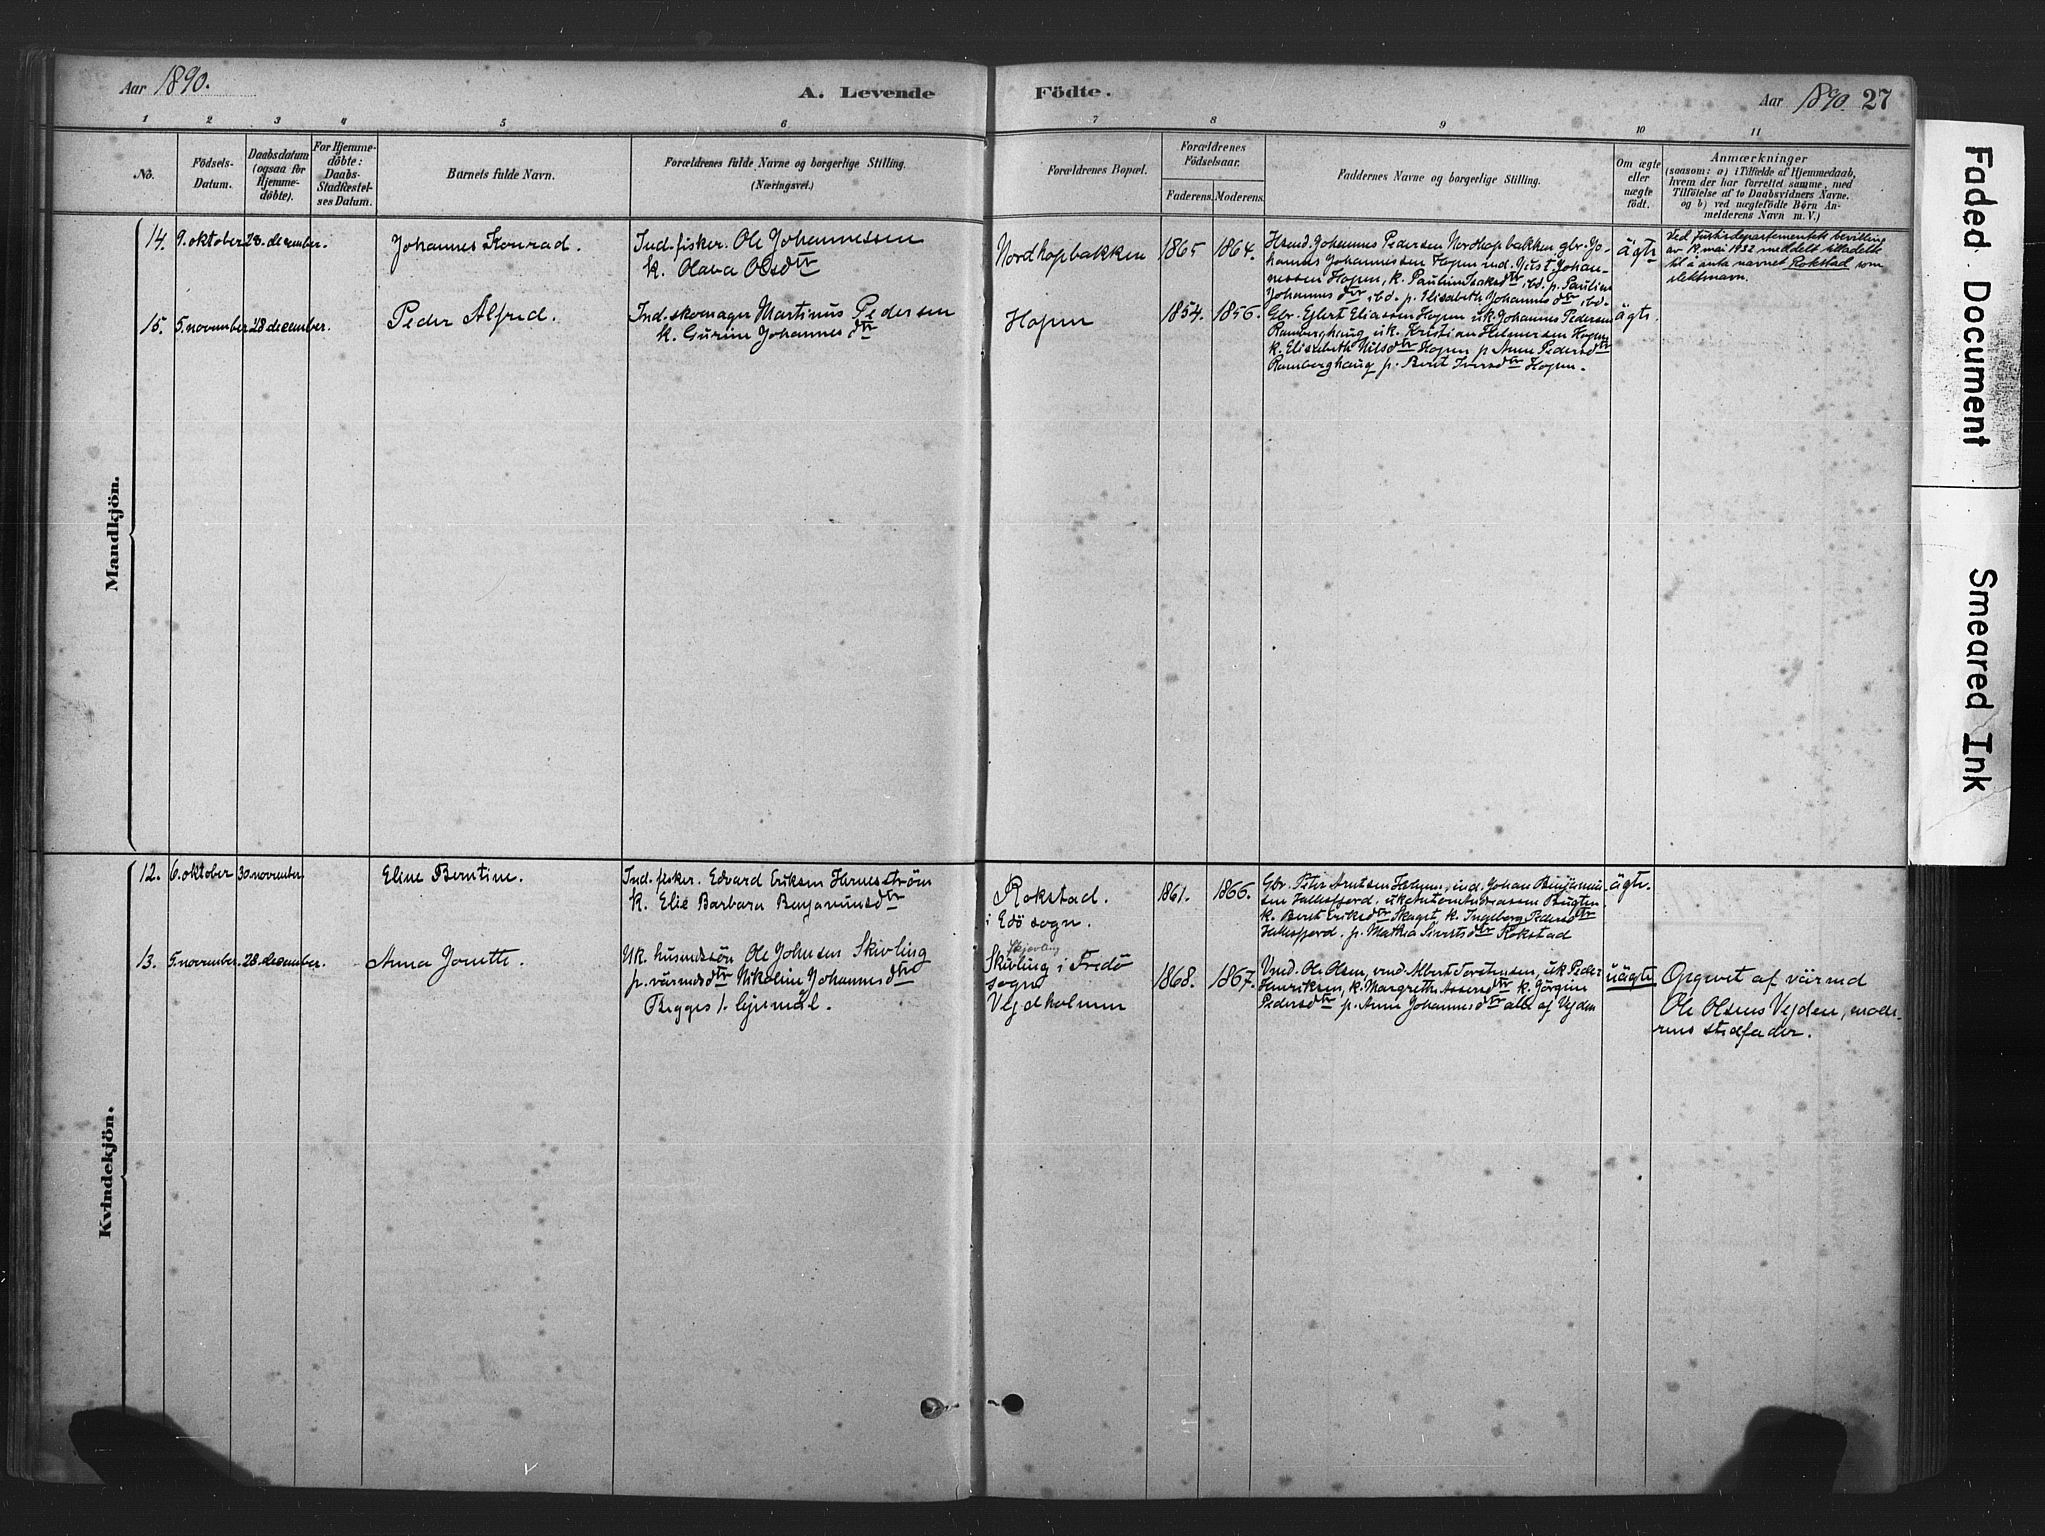 Aar 1890.
A. Levende
Födte.
Aar 1890. 27
1
2
3
4
5
6
7
8
9
10
11
No.
Födsels-
Datum.
Daabsdatum
(ogsaa for
Hjemme-
döbte).
For Hjemme-
döbte:
Daabs-
Stadfæstel-
ses Datum.
Barnets fulde Navn.
Forældrenes fulde Navne og borgerlige Stilling.
(Næringsvei.)
Forældrenes Bopæl.
Forældrenes
Födselsaar.
Faderens.
Moderens.
Faddernes Navne og borgerlige Stilling.
Om ægte
eller
uægte
födt.
Anmærkninger
(saasom: a) i Tilfælde af Hjemmedaab,
hvem der har forrettet samme, med
Tilföielse af to Daabsvidners Navne,
og b) ved uægtefödte Börn An-
melderens Navn m. V.)
Mandkjön.
14. 9. oktober 28. december.
Johannes Konrad.
Ind. fisker. Ole Johannessen
k. Olava Olsdtr
Nordhopbakken
1865
1864.
Hsmd. Johannes Pedersen Nordhopbakken gbr. Jo-
hannes Johannessen Hopen ind. Just Johan-
nessen Hopen, k. Pauline Isaksdtr ibd. p. Pauline
Johannesdtr ibd. p. Elisabeth Johannesdtr ibd.
ägte
Ved justisdepartementets bevilling
av 19 mai 1932 meddelt tillatelse
til å anta navnet Rokstad som
slektsnavn.
15. 5. november 28 december.
Peder Alfred.
Ind. skomager Martinus Pedersen
k. Gurine Johannesdtr
Hopen
1854.
1856.
Gbr. Ejlert Eliassen Hopen uk. Johannes Pedersen
Ramberghaug, uk. Kristian Helmersen Hopen
k. Elisabeth Nilsdtr Hopen p. Anne Pedersdtr
Ramberghaug p. Berit Iversdtr Hopen.
ägte.
Kvindekjön.
12. 6. oktober 30 november
Eline Berntine.
Ind. fisker. Edvard Eriksen
k. Elie Barbara Benjaminsdtr
Rokstad.
i Edö sogn.
1861.
1866.
Gbr. Peter Arntsen ind. Johan Benjamin-
sen
k. Berit Eriksdtr Skaget, k. Ingeborg Pedersdtr
p. Mathea Sivertsdtr Rokstad
ägte.
13. 5. november. 28. december.
Anna Jonette.
Uk. husmdssön Ole Johnsen Skivling
p. Nikoline Johannesdtr
Begges 1. lejermål.
Skjevling
Skivling i Fredö
sogn
Vejdholmen
1868.
1867.
Vmd. Ole Olsen, vmd. Albert Torstensen, uk. Peder
Henriksen, k. Margrethe k. Jörgine
Pedersdtr p. Anne Johannesdtr alle af Vejden
uägte
Opgivet af värmd
Ole Olsens Vejden, mode-
rens stedfader.
Faded Document
Smeared Ink